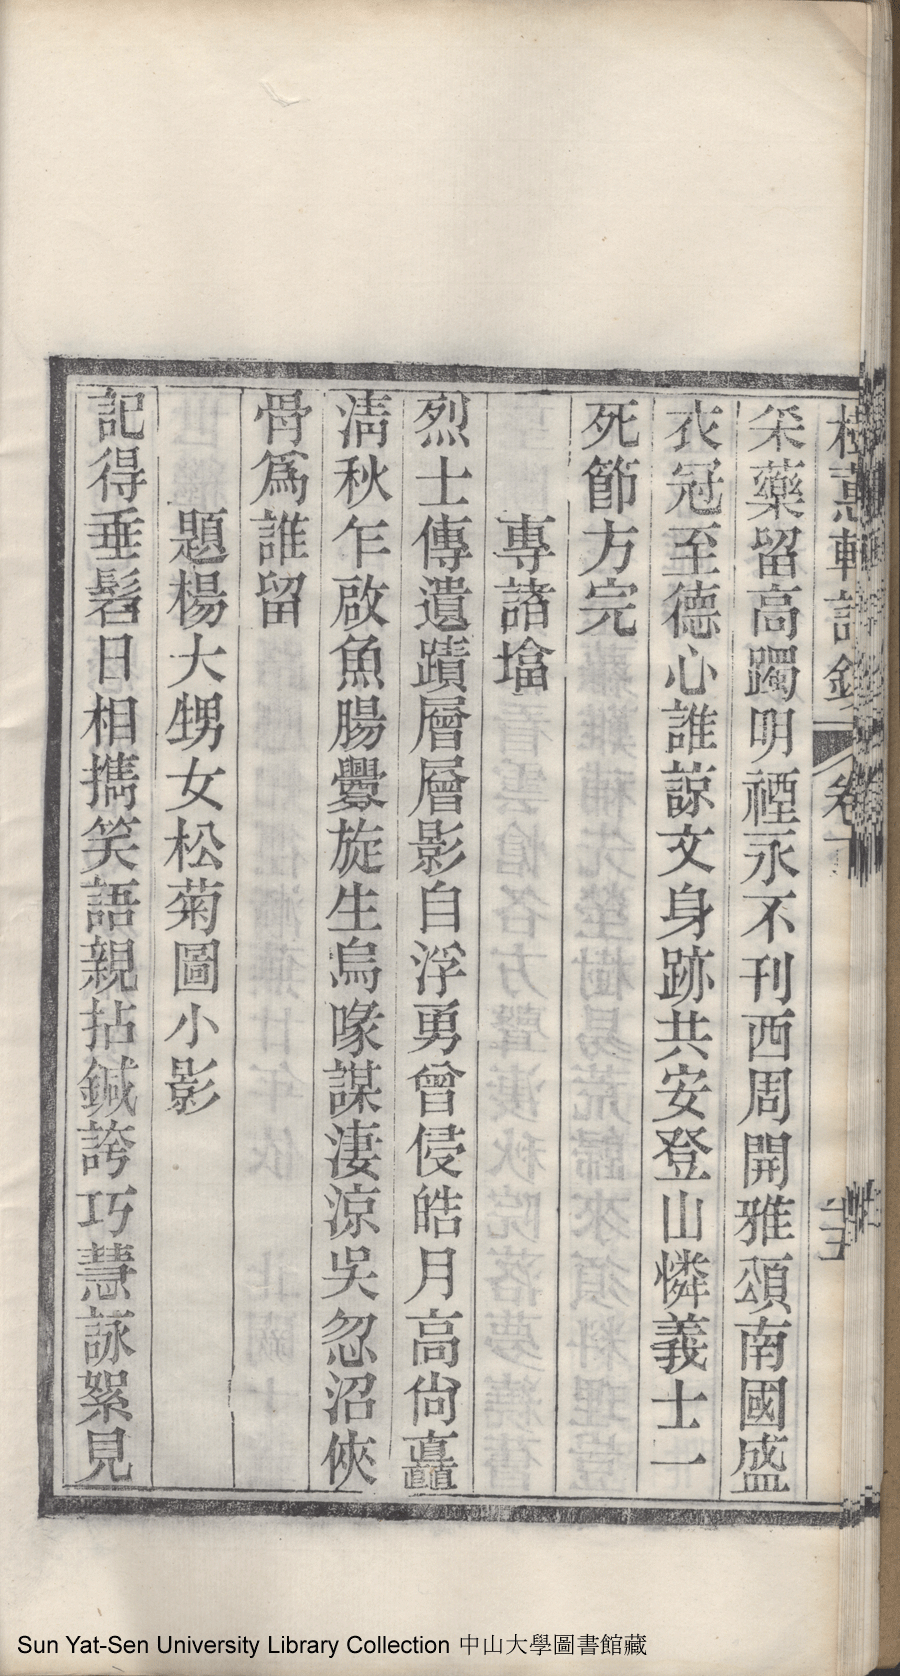 軒詩鈔 卷十
采藥留高躅明禋永不刊西周開雅頌南國盛
衣冠至德心誰諒文身跡共安登山憐義士一
死節方完
專諸墖
烈士傳遺蹟層層影自浮勇曾侵皓月高尙矗
淸秋乍啟魚腸釁旋生烏喙謀淒涼吳忽沼俠
骨爲誰留
題楊大甥女松菊圖小影
記得垂髫日相攜笑語親拈鍼誇巧慧詠絮見
Sun Yat-Sen University Library Collection 中山大學圖書館藏